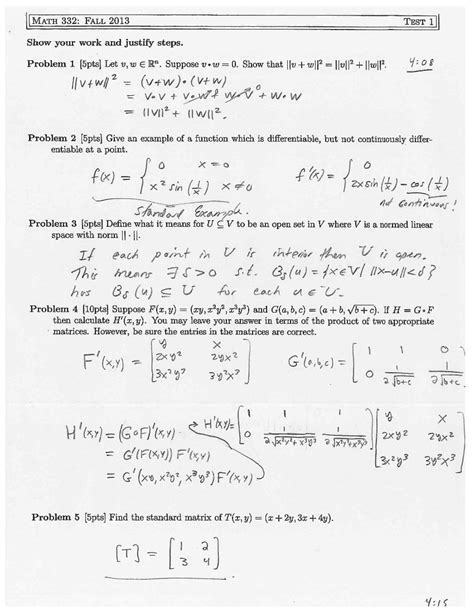 MATH 332: FALL 2013 TEST 1
Show your work and justify steps.
Problem 1 [5pts] Let v, w ∈ ℝⁿ. Suppose v • w = 0. Show that ||v + w||² = ||v||² + ||w||². 4:08
||v+w||² = (v+w)·(v+w)
= v·v + v·w + w·v + w·w
= ||v||² + ||w||².
Problem 2 [5pts] Give an example of a function which is differentiable, but not continuously differ-
entiable at a point.
f(x) = { 0 x = 0
x² sin(1/x) x ≠ 0
f'(x) = { 0
2x sin(1/x) - cos(1/x)
not continuous!
Standard Example.
Problem 3 [5pts] Define what it means for U ⊆ V to be an open set in V where V is a normed linear
space with norm || · ||.
If each point in U is interior then U is open.
This means ∃ δ > 0 s.t. B_δ(u) = {x ∈ V | ||x-u|| < δ}
has B_δ(u) ⊆ U for each u ∈ U.
Problem 4 [10pts] Suppose F(x, y) = (xy, x²y², x³y³) and G(a, b, c) = (a + b, √b + c). If H = G ∘ F
then calculate H'(x, y). You may leave your answer in terms of the product of two appropriate
matrices. However, be sure the entries in the matrices are correct.
F'(x,y) = [ y x
2xy² 2yx²
3x²y³ 3y²x³ ]
G'(a,b,c) = [ 1 1 0
0 1/(2√b+c) 1/(2√b+c) ]
H'(x,y) = (G∘F)'(x,y)
= G'(F(x,y)) F'(x,y)
= G'(xy, x²y², x³y³) F'(x,y)
H'(x,y) = [ 1 1 1
0 1/(2√x²y²+x³y³) 1/(2√x²y²+x³y³) ] [ y x
2xy² 2yx²
3x²y³ 3y²x³ ]
Problem 5 [5pts] Find the standard matrix of T(x, y) = (x + 2y, 3x + 4y).
[T] = [ 1 2
3 4 ]
4:15